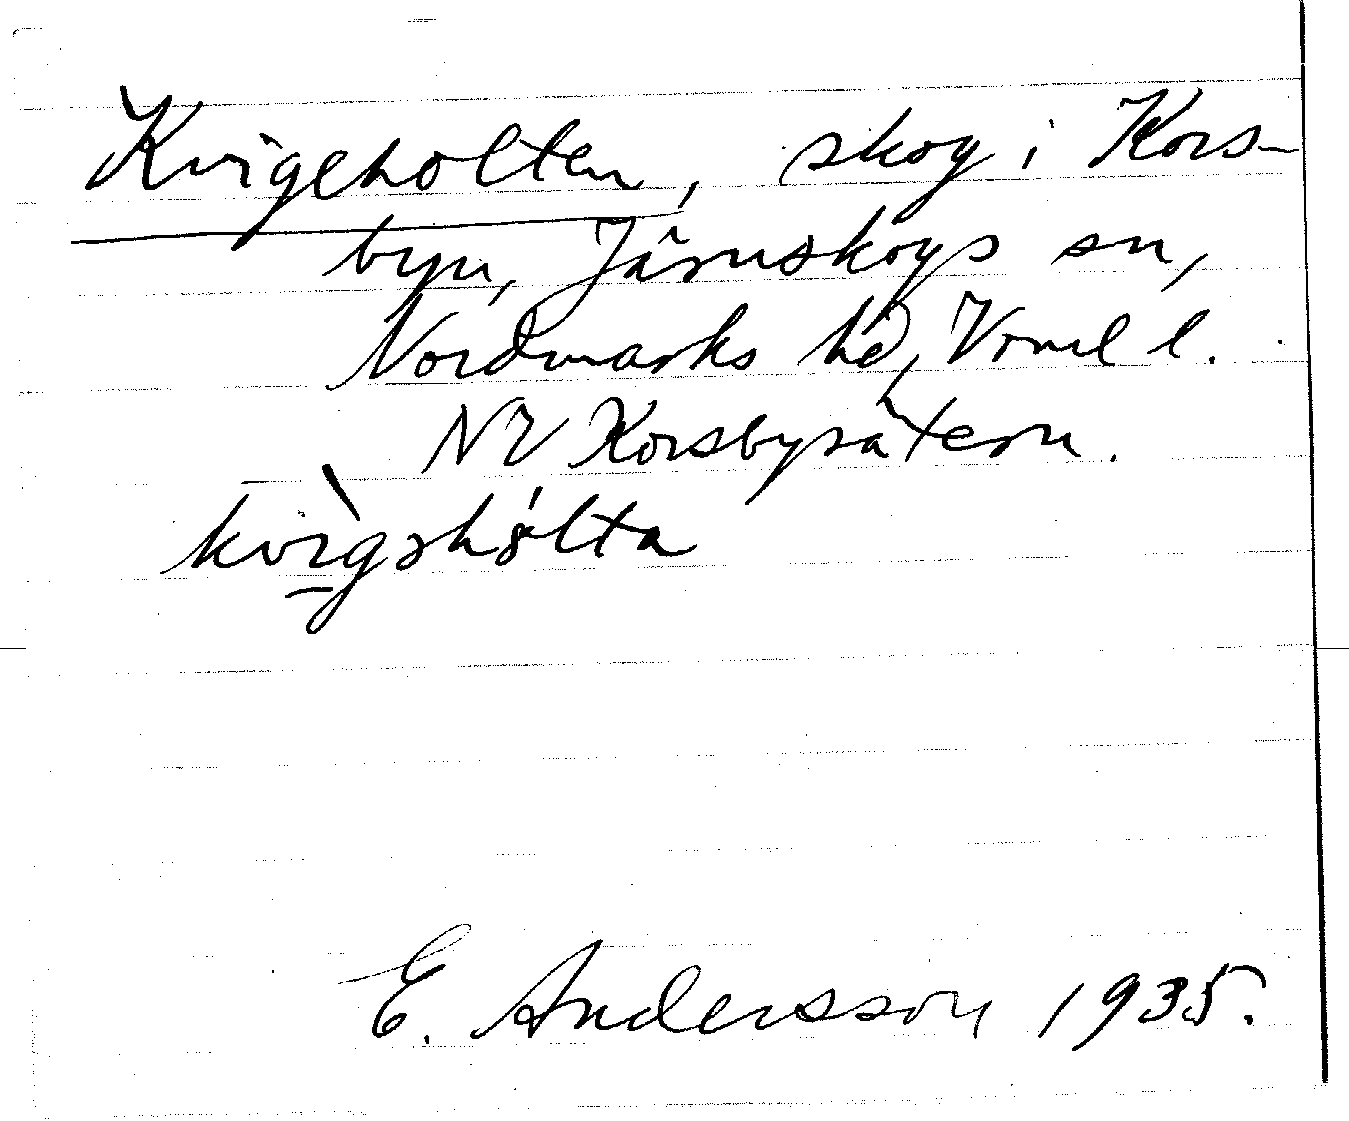 Kvigeholten, skog i Kors-
byn, Järnskogs sn,
Nordmarks hd, Vrml l.
NV Korsbysätern.
kvìgəhó̤lta
E. Andersson 1935.